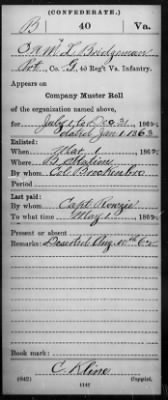 (CONFEDERATE.)
B 40 Va.
Wm L Bridgeman
Pvt, Co. G, 40 Reg't Va. Infantry.
Appears on
Company Muster Roll
of the organization named above,
for July 1 to Dec 31, 1862.
dated Jan 1 1863
Enlisted:
When 1, 186
Where
By whom Col Brockenbro
Period
Last paid:
By whom Capt
To what time May 1, 1862.
Present or absent
Remarks: Deserted Aug 10th 62
Book mark:
C. Kline
(642) Copyist.